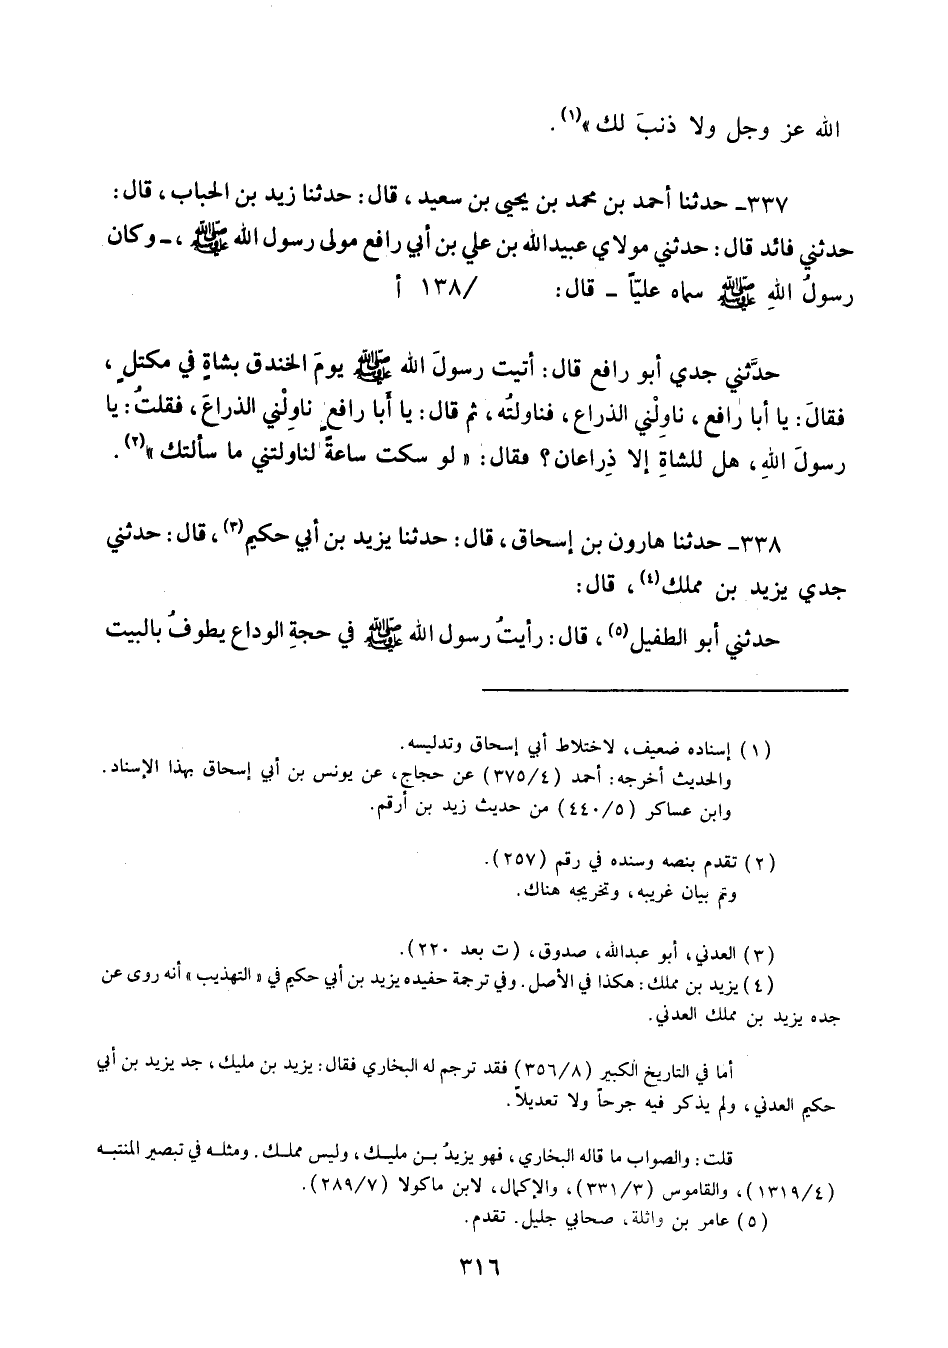 الله عز وجل ولا ذنبَ لك »(١) .
٣٣٧ـ حدثنا أحمد بن محمد بن يحيى بن سعيد ، قال : حدثنا زيد بن الحباب ، قال :
حدثني فائد قال : حدثني مولاي عبيدالله بن علي بن أبي رافع مولى رسول الله ﷺ ، ـ وكان
رسولُ اللهِ ﷺ سماه عليّاً ـ قال : /١٣٨ أ
حدَّثني جدي أبو رافع قال : أتيت رسولَ الله ﷺ يومَ الخندق بشاةٍ في مكتلٍ ،
فقالَ : يا أبا رافع ، ناوِلْني الذراع ، فناولتُه ، ثم قال : يا أَبا رافعٍ ناوِلْني الذراعَ ، فقلتُ : يا
رسولَ اللهِ ، هل للشاةِ إلا ذِراعان ؟ فقال : « لو سكت ساعةً لناولتني ما سألتك »(٢) .
٣٣٨ـ حدثنا هارون بن إسحاق ، قال : حدثنا يزيد بن أبي حكيم(٣) ، قال : حدثني
جدي يزيد بن مملك(٤) ، قال :
حدثني أبو الطفيل(٥) ، قال : رأيتُ رسول الله ﷺ في حجةِ الوداع يطوفُ بالبيت
(١) إسناده ضعيف، لاختلاط أبي إسحاق وتدليسه.
والحديث أخرجه: أحمد (٣٧٥/٤) عن حجاج، عن يونس بن أبي إسحاق بهذا الإسناد.
وابن عساكر (٤٤٠/٥) من حديث زيد بن أرقم.
(٢) تقدم بنصه وسنده في رقم (٢٥٧).
وتم بيان غريبه، وتخريجه هناك.
(٣) العدني، أبو عبدالله، صدوق، (ت بعد ٢٢٠).
(٤) يزيد بن مملك : هكذا في الأصل . وفي ترجمة حفيده يزيد بن أبي حكيم في « التهذيب » أنه روى عن
جده يزيد بن مملك العدني.
أما في التاريخ الكبير (٣٥٦/٨) فقد ترجم له البخاري فقال : يزيد بن مليك ، جد يزيد بن أبي
حكيم العدني، ولم يذكر فيه جرحاً ولا تعديلاً.
قلت : والصواب ما قاله البخاري ، فهو يزيدُ بـن مليـك ، وليس مملـك . ومثلـه في تبصير المنتبـه
(١٣١٩/٤)، والقاموس (٣٣١/٣)، والإكمال، لابن ماكولا (٢٨٩/٧).
(٥) عامر بن واثلة، صحابي جليل. تقدم.
٣١٦